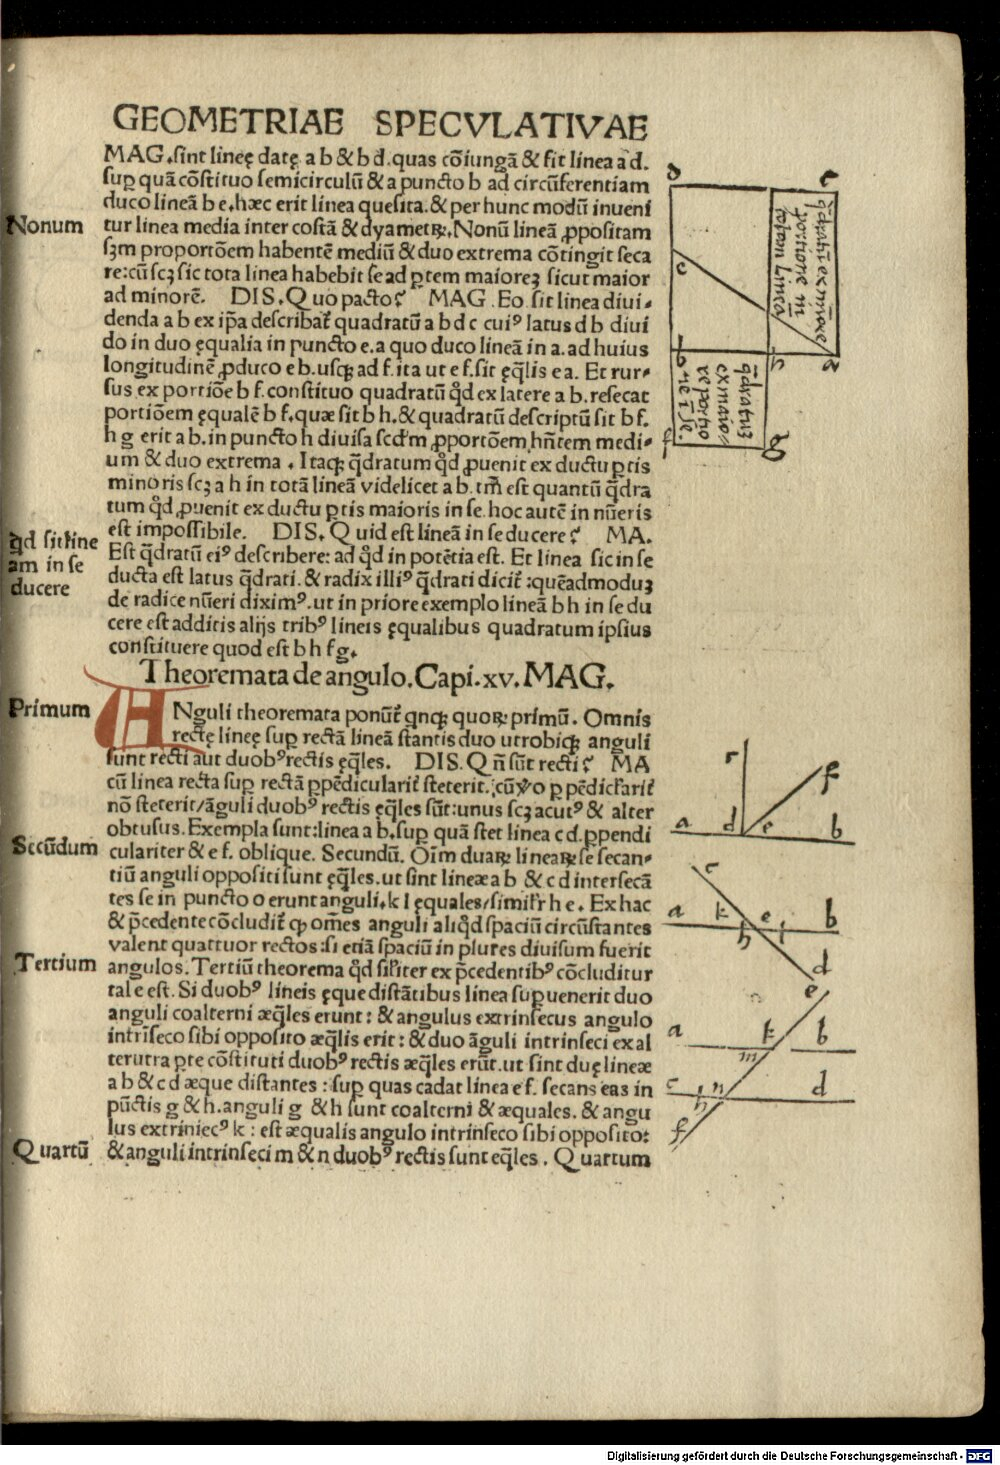 GEOMETRIAE SPECVLATIVAE
MAG. sint lineę datę a b & b d. quas cōiungā & sit linea a d.
suꝑ quā cōstituo semicirculū & a puncto b ad circūferentiam
duco lineā b e. hæc erit linea quesita. & per hunc modū inueni
Nonum
tur linea media inter costā & dyametꝝ. Nonū lineā ꝓpositam
ſꝫm proportōem habentē mediū & duo extrema cōtingit seca
re: cū scꝫ sic tota linea habebit se ad ꝑtem maiorēꝫ sicut maior
ad minorē. DIS. Quo pacto? MAG. Eo. sit linea diui-
denda a b ex ip̄a describat̄ quadratū a b d c cuiꝰ latus d b diui
do in duo ęqualia in puncto e. a quo duco lineā in a. ad huius
longitudinē ꝓduco e b. usqꝫ ad f. ita ut e f. sit ęq̄lis e a. Et rur-
sus ex portiōe b f. constituo quadratū qd̄ ex latere a b. resecat
portiōem ęqualē b f. quæ sit b h. & quadratū descriptū sit b f.
h g erit a b. in puncto h diuisa scd̄m ꝓportōem hn̄tem medi-
um & duo extrema. Itaqꝫ q̄dratum qd̄ ꝓuenit ex ductu ꝑtis
minoris scꝫ a h in totā lineā videlicet a b. tm̄ est quantū q̄dra
tum qd̄ ꝓuenit ex ductu ꝑtis maioris in se. hoc autē in nūeris
est impossibile. DIS. Quid est lineā in se ducere? MA.
qd sit line
am in se
ducere
Est q̄dratū eiꝰ describere: ad qd̄ in potētia est. Et linea sic in se
ducta est latus q̄drati. & radix illiꝰ q̄drati dicit̄: quēadmoduꝫ
de radice nūeri diximꝰ. ut in priore exemplo lineā b h in se du
cere est additis alijs tribꝰ lineis ęqualibus quadratum ipsius
constituere quod est b h f g.
Theoremata de angulo. Capi. xv. MAG.
Primum
ANguli theoremata ponūt̄ qnqꝫ quoꝝ primū. Omnis
rectę lineę suꝑ rectā lineā stantis duo utrobiqꝫ anguli
sunt recti aut duobꝰ rectis ęq̄les. DIS. Qn̄ sūt recti? MA
cū linea recta suꝑ rectā ꝑpēdicularit̄ steterit. cū ꝟo ꝑpēdicl̄arit̄
nō steterit/ āguli duobꝰ rectis ęq̄les sūt: unus scꝫ acutꝰ & alter
obtusus. Exempla sunt: linea a b. suꝑ quā stet linea c d. ꝑpendi
Secūdum
culariter & e f. oblique. Secundū. Oīm duaꝝ lineaꝝ se secan-
tiū anguli oppositi sunt ęq̄les. ut sint lineæ a b & c d intersecā
tes se in puncto o erunt anguli. k l ęquales/ similr̄ h e. Ex hac
& p̄cedente cōcludit̄ qꝫ om̄es anguli aliqd̄ spaciū circūstantes
valent quattuor rectos: si etiā spaciū in plures diuisum fuerit
Tertium
angulos. Tertiū theorema qd̄ sil̄iter ex p̄cedentibꝰ cōcluditur
tale est. Si duobꝰ lineis ęque distātibus linea suꝑuenerit duo
anguli coalterni æq̄les erunt: & angulus extrinsecus angulo
intrīseco sibi opposito æq̄lis erit: & duo āguli intrinseci ex al
terutra ꝑte cōstituti duobꝰ rectis æq̄les erūt. ut sint duę lineæ
a b & c d æque distantes: suꝑ quas cadat linea e f. secans eas in
pūctis g & h. anguli g & h sunt coalterni & æquales. & angu
lus extriniecꝰ k: est æqualis angulo intrinseco sibi opposito:
Quartū
& anguli intrinseci m & n duobꝰ rectis sunt ęq̄les. Quartum
d
e
c
b
a
f
g
q̄dratū ex minore
portione in
totam lineā
q̄dratus
ex maio/
re portio
ne ī se.
c
f
a
d
e
b
c
a
k
e
b
h
l
d
e
a
k
b
m
c
n
d
h
f
Digitalisierung gefördert durch die Deutsche Forschungsgemeinschaft - DFG